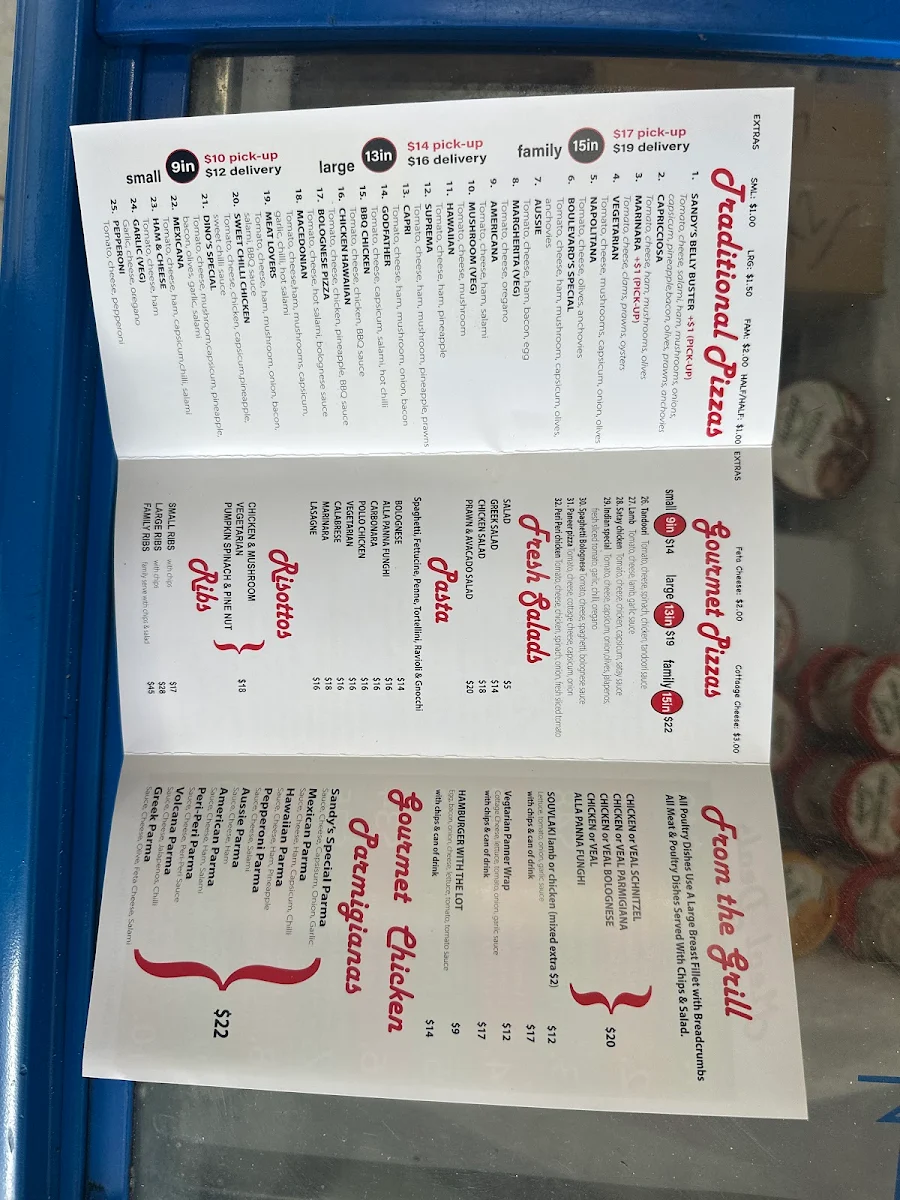 EXTRAS SML: $1.00 LRG: $1.50 FAM: $2.00 HALF/HALF: $1.00
Traditional Pizzas
small 9in $10 pick-up
$12 delivery
large 13in $14 pick-up
$16 delivery
family 15in $17 pick-up
$19 delivery
1. SANDY'S BELLY BUSTER +$1 (PICK-UP)
Tomato, cheese, salami, ham, mushrooms, onions,
capsicum, pineapple, bacon, olives, prawns, anchovies
2. CAPRICCIOSA
Tomato, cheese, ham, mushrooms, olives
3. MARINARA +$1 (PICK-UP)
Tomato, cheese, clams, prawns, oysters
4. VEGETARIAN
Tomato, cheese, mushrooms, capsicum, onion, olives
5. NAPOLITANA
Tomato, cheese, olives, anchovies
6. BOULEVARD'S SPECIAL
Tomato, cheese, ham, mushroom, capsicum, olives,
anchovies
7. AUSSIE
Tomato, cheese, ham, bacon, egg
8. MARGHERITA (VEG)
Tomato, cheese, oregano
9. AMERICANA
Tomato, cheese, ham, salami
10. MUSHROOM (VEG)
Tomato, cheese, mushroom
11. HAWAIIAN
Tomato, cheese, ham, pineapple
12. SUPREMA
Tomato, cheese, ham, mushroom, pineapple, prawns
13. CAPRI
Tomato, cheese, ham, mushroom, onion, bacon
14. GODFATHER
Tomato, cheese, capsicum, salami, hot chilli
15. BBQ CHICKEN
Tomato, cheese, chicken, BBQ sauce
16. CHICKEN HAWAIIAN
Tomato, cheese, chicken, pineapple, BBQ sauce
17. BOLOGNESE PIZZA
Tomato, cheese, hot salami, bolognese sauce
18. MACEDONIAN
Tomato, cheese,ham, mushrooms, capsicum,
garlic, chilli, hot salami
19. MEAT LOVERS
Tomato, cheese, ham, mushroom, onion, bacon,
salami, BBQ sauce
20. SWEET CHILLI CHICKEN
Tomato, cheese, chicken, capsicum,pineapple,
sweet chilli sauce
21. DINO'S SPECIAL
Tomato, cheese, mushroom,capsicum, pineapple,
bacon, olives, garlic, salami
22. MEXICANA
Tomato, cheese, ham, capsicum,chilli, salami
23. HAM & CHEESE
Tomato, cheese, ham
24. GARLIC (VEG)
Garlic, cheese, oregano
25. PEPPERONI
Tomato, cheese, pepperoni
EXTRAS Feta Cheese: $2.00 Cottaage Cheese: $3.00
Gourmet Pizzas
small 9in $14 large 13in $19 family 15in $22
26. Tandoori Tomato, cheese, spinach, chicken, tandoori sauce
27. Lamb Tomato, cheese, lamb, garlic sauce
28. Satay chicken Tomato, cheese, chicken, capsicum, satay sauce
29. Indian special Tomato, cheese, capsicum, onion,olives, jalapenos,
fresh sliced tomato, garlic, chilli, oregano
30. Spaghetti Bolognese Tomato, cheese, spaghetti, bolognese sauce
31. Paneer pizza Tomato, cheese, cottage cheese, capsicum, onion
32. Peri Peri chicken Tomato, cheese, chicken, spinach, onion, fresh sliced tomato
Fresh Salads
SALAD $5
GREEK SALAD $14
CHICKEN SALAD $18
PRAWN & AVACADO SALAD $20
Pasta
Spaghetti, Fettucine, Penne, Tortellini, Ravioli & Gnocchi
BOLOGNESE $14
ALLA PANNA FUNGHI $16
CARBONARA $16
POLLO CHICKEN $16
VEGETARIAN $16
CALABRESE $16
MARINARA $18
LASAGNE $16
Risottos
CHICKEN & MUSHROOM
VEGETARIAN
PUMPKIN SPINACH & PINE NUT
$18
Ribs
SMALL RIBS with chips $17
LARGE RIBS with chips $28
FAMILY RIBS family serve with chips & salad $45
From the Grill
All Poultry Dishes Use A Large Breast Fillet with Breadcrumbs
All Meat & Poultry Dishes Served With Chips & Salad.
CHICKEN or VEAL SCHNITZEL
CHICKEN or VEAL PARMIGIANA
CHICKEN or VEAL BOLOGNESE
CHICKEN or VEAL
ALLA PANNA FUNGHI
$20
SOUVLAKI lamb or chicken (mixed extra $2) $12
Lettuce, tomato, onion, garlic sauce
with chips & can of drink $17
Vegtarian Panner Wrap $12
Cottage Cheese, lettuce, tomato, onion, garlic sauce
with chips & can of drink $17
HAMBURGER WITH THE LOT $9
Egg, bacon, onion, cheese, lettuce, tomato, tomato sauce
with chips & can of drink $14
Gourmet Chicken
Parmigianas
Sandy's Special Parma
Sauce, Cheese, Capsisum, Onion, Garlic
Mexican Parma
Sauce, Cheese, Ham, Capsicum, Chilli
Hawaiian Parma
Sauce, Cheese, Ham, Pineapple
Pepperoni Parma
Sauce, Cheese, Salami
Aussie Parma
Sauce, Cheese, Ham
American Parma
Sauce, Cheese, Ham, Salami
Peri-Peri Parma
Sauce, Cheese, Peri-Peri Sauce
Volcana Parma
Sauce, Cheese, Jalapenos, Chilli
Greek Parma
Sauce, Cheese, Olive, Feta Cheese, Salami
$22